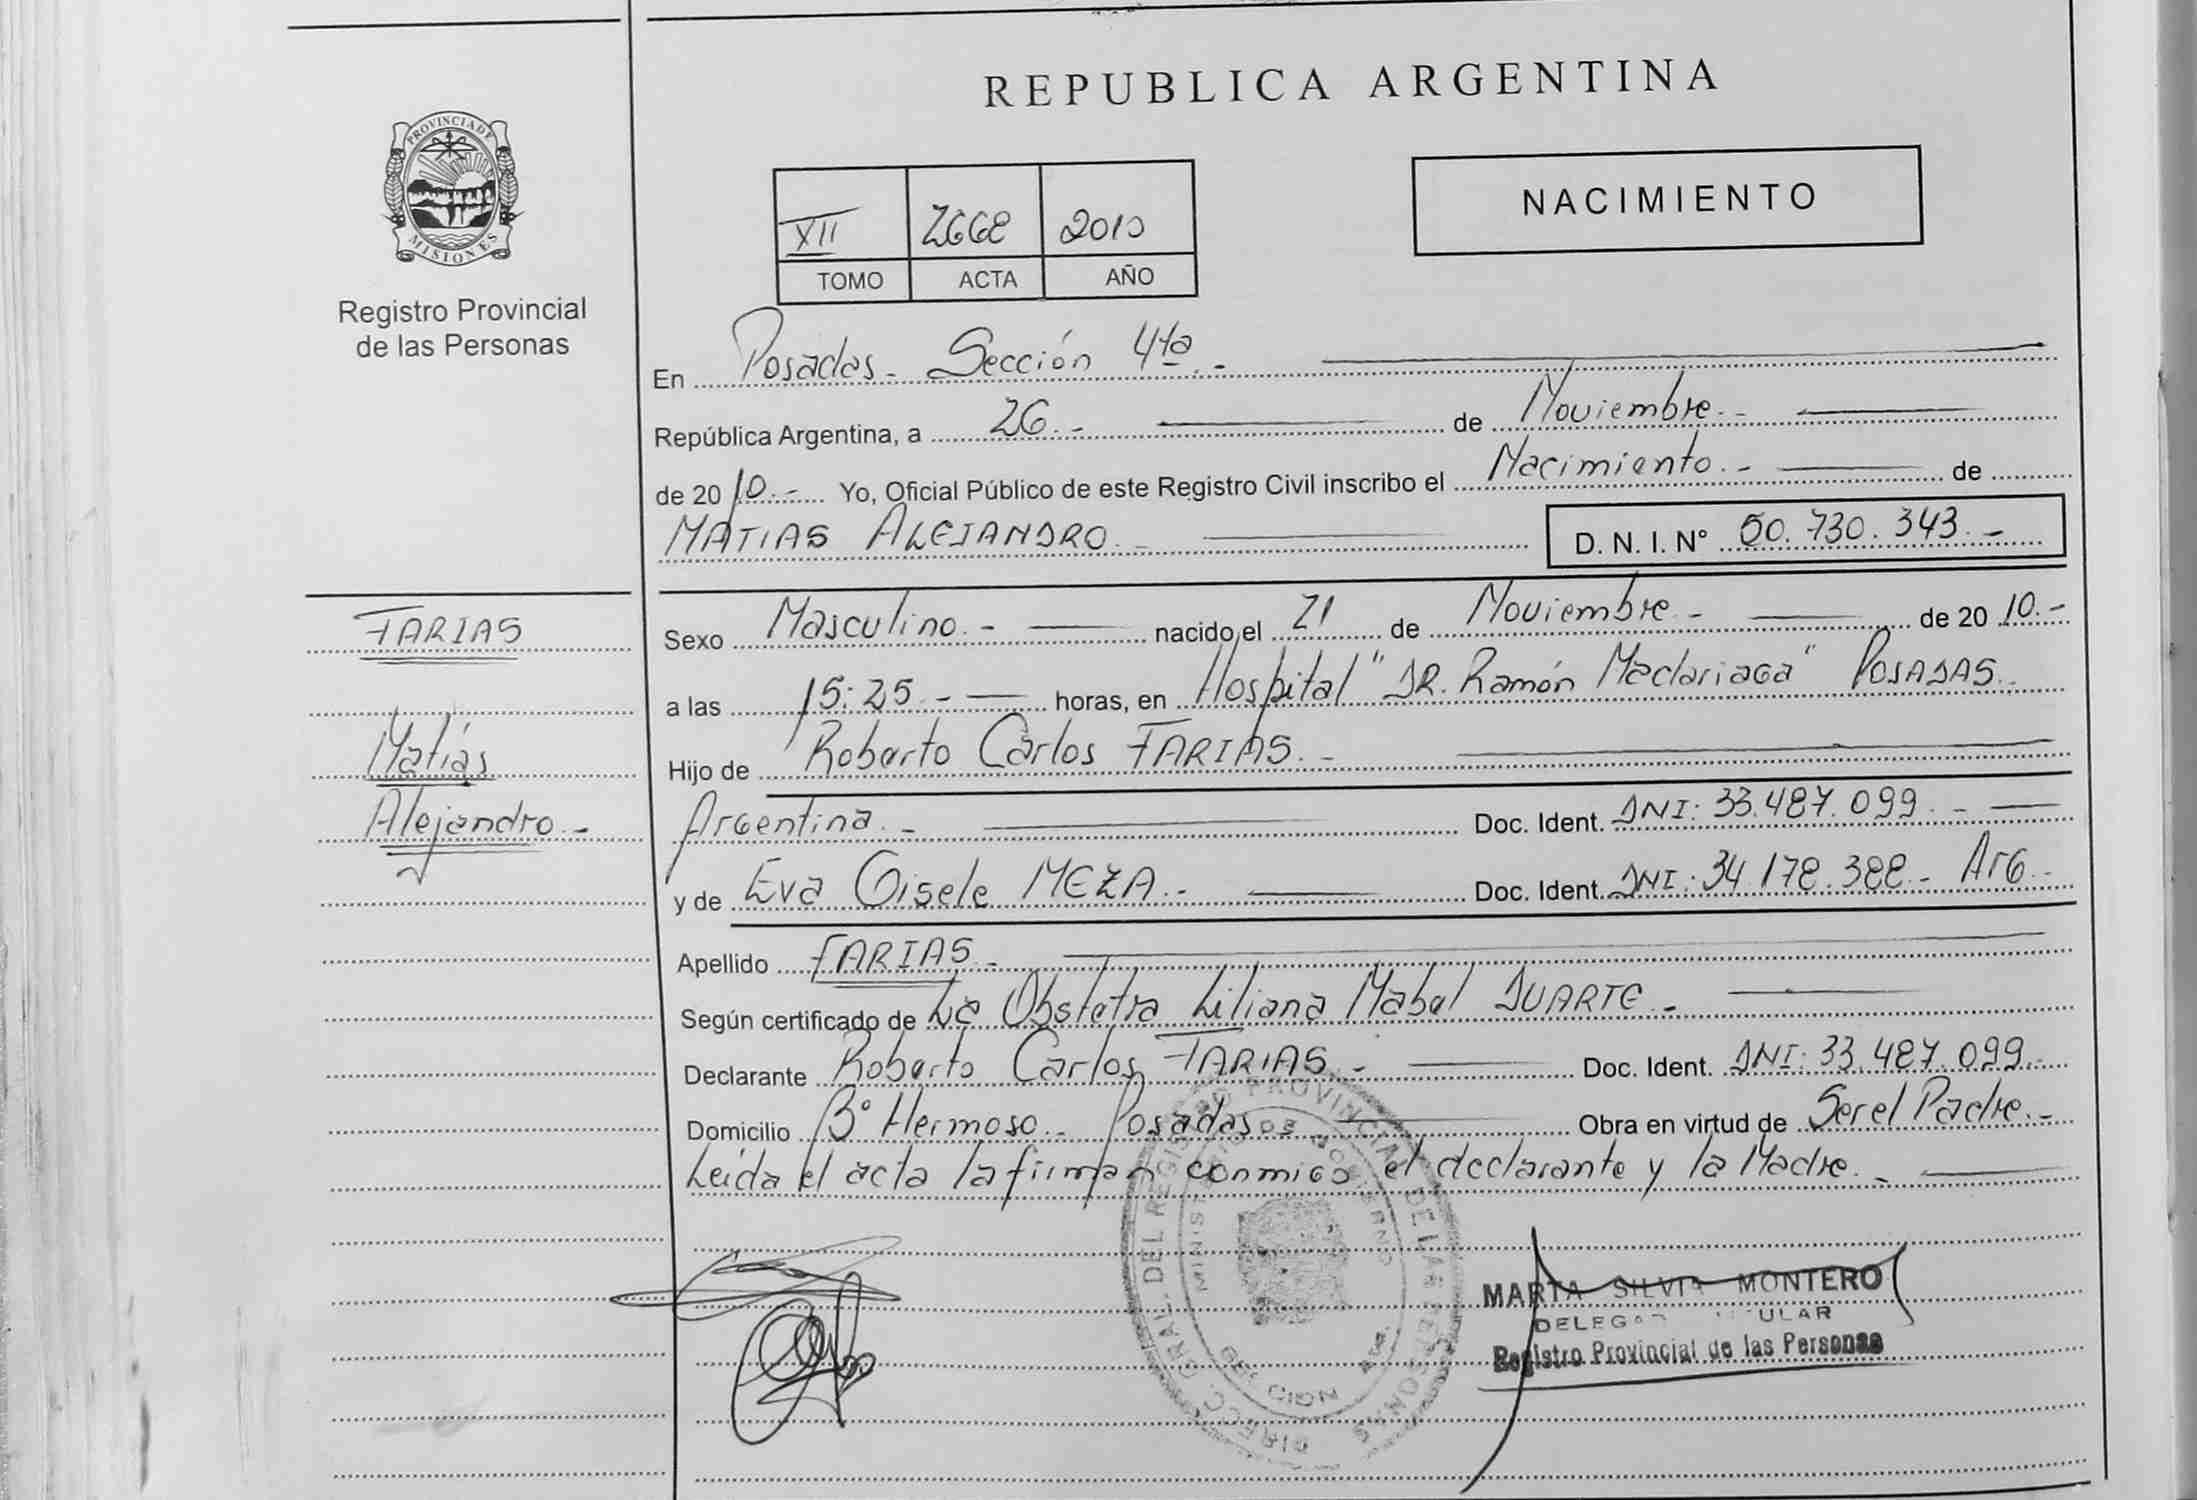 REPUBLICA ARGENTINA
PROVINCIA DE
MISIONES
Registro Provincial
de las Personas
NACIMIENTO
XII 2668 2010
TOMO ACTA AÑO
En Posadas - Sección 4ta. -
República Argentina, a 26. - de Noviembre. -
de 2010. - Yo, Oficial Público de este Registro Civil inscribo el Nacimiento. - de
MATIAS ALEJANDRO. - D. N. I. N° 50.730.343. -
FARIAS
Matías
Alejandro. -
Sexo Masculino. - nacido el 21 de Noviembre - de 2010. -
a las 15:25. - horas, en Hospital "DR. Ramón Madariaga" POSADAS.
Hijo de Roberto Carlos FARIAS. -
Argentina. - Doc. Ident. DNI: 33.487.099. -
y de Eva Gisele MEZA. - Doc. Ident. DNI: 34.178.388 - Arg. -
Apellido FARIAS. -
Según certificado de La Obstetra Liliana Mabel DUARTE. -
Declarante Roberto Carlos FARIAS. - Doc. Ident. DNI: 33.487.099. -
Domicilio B° Hermoso - Posadas Obra en virtud de Ser el Padre. -
Leída el acta la firman conmigo el declarante y la Madre. -
DIRECC. GRAL. DEL REGISTRO PROVINCIAL DE LAS PERSONAS
MINISTERIO DE GOBIERNO
MARTA SILVIA MONTERO
Registro Provincial de las Personas